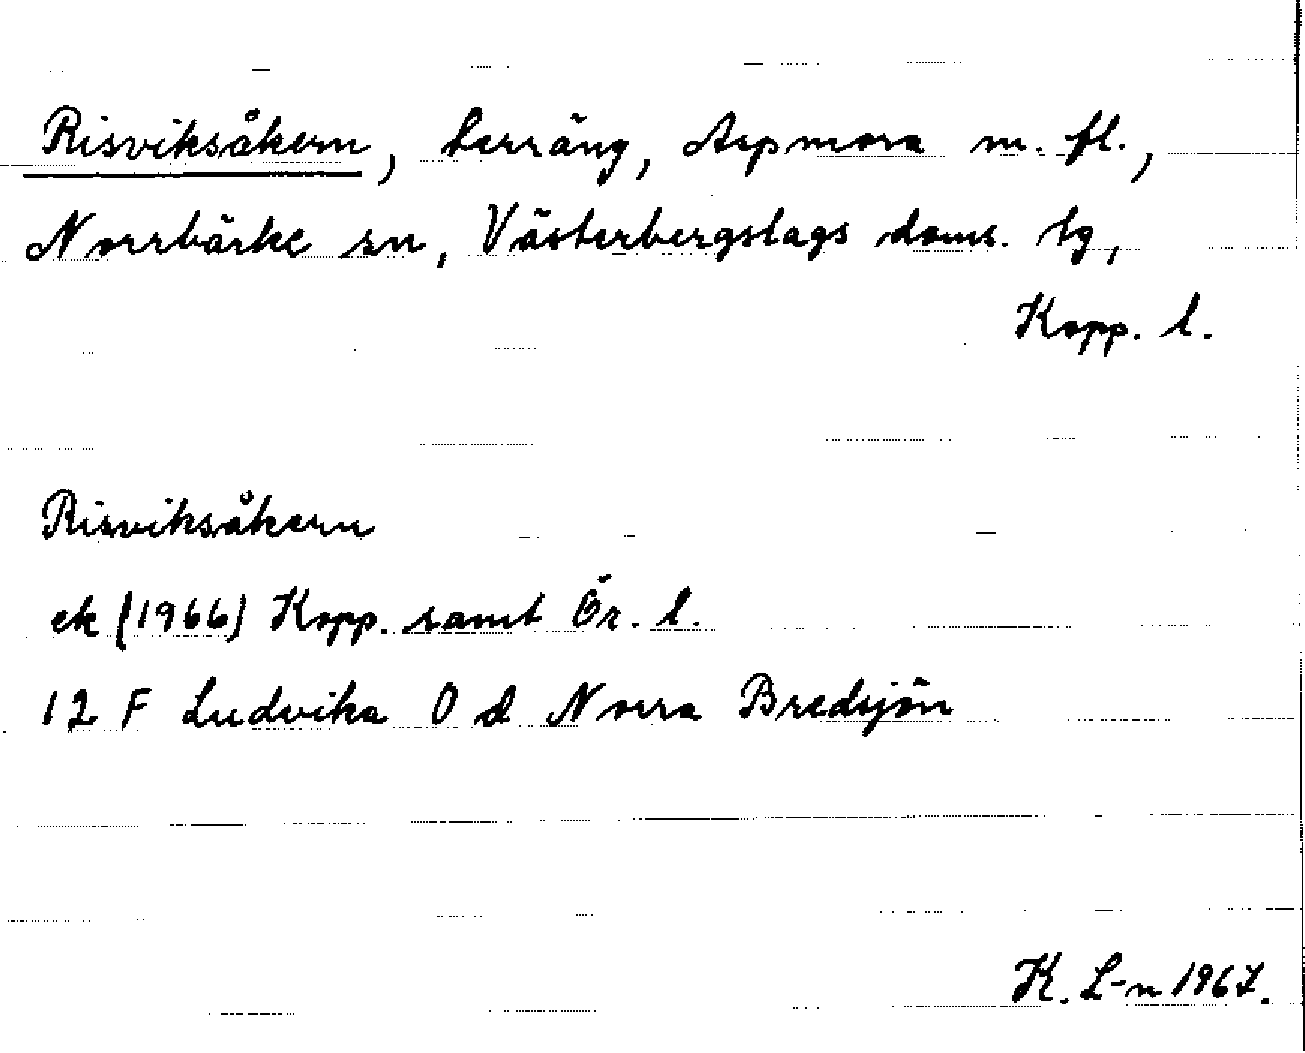 Risviksåkern, terräng, Aspmora m. fl.,
Norrbärke sn, Västerbergslags doms. tg,
Kopp. l.
Risviksåkern
ek (1966) Kopp. samt Ör. l.
12 F Ludvika 0 d Norra Bredsjön
K. L-n 1967.